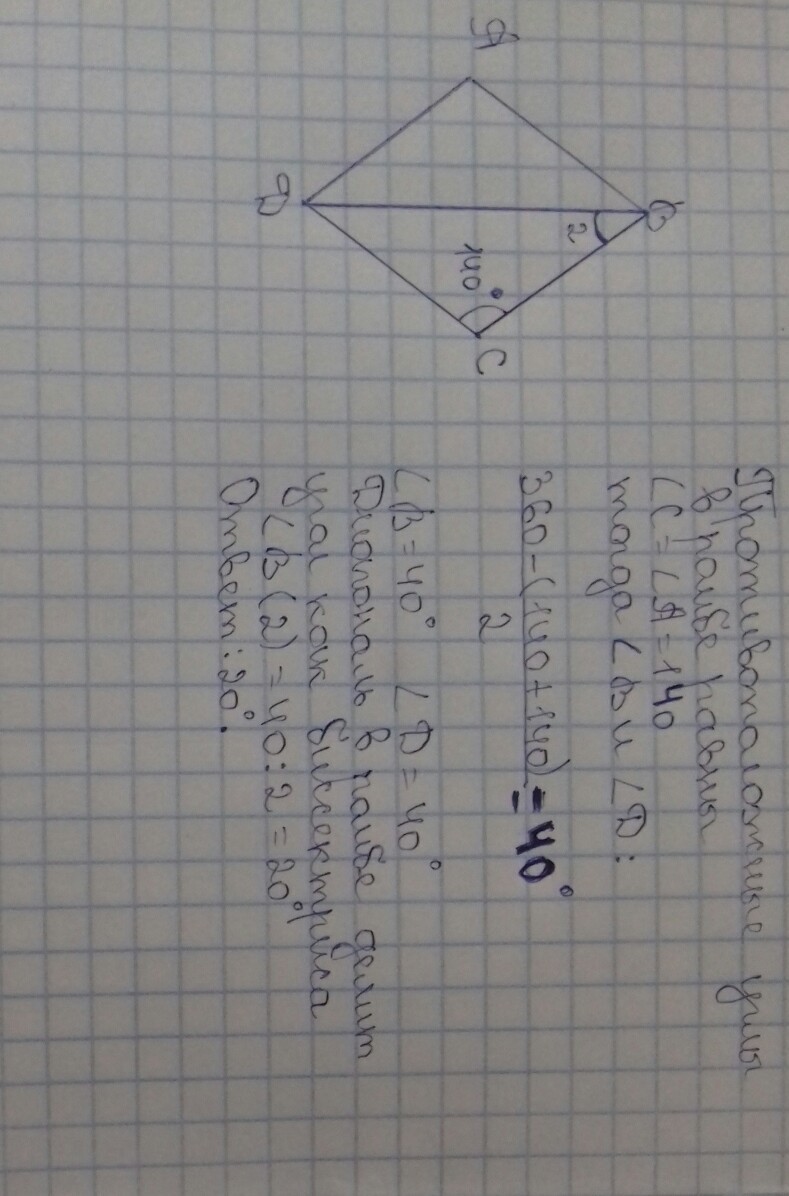 A
B
2
140°
C
D
Противоположные углы
в ромбе равны
∠C=∠A=140
тогда ∠B и ∠D:
360-(140+140)
2
=40°
∠B=40° ∠D=40°
Диагональ в ромбе делит
угол как биссектриса
∠B(2)=40:2=20°
Ответ: 20°.